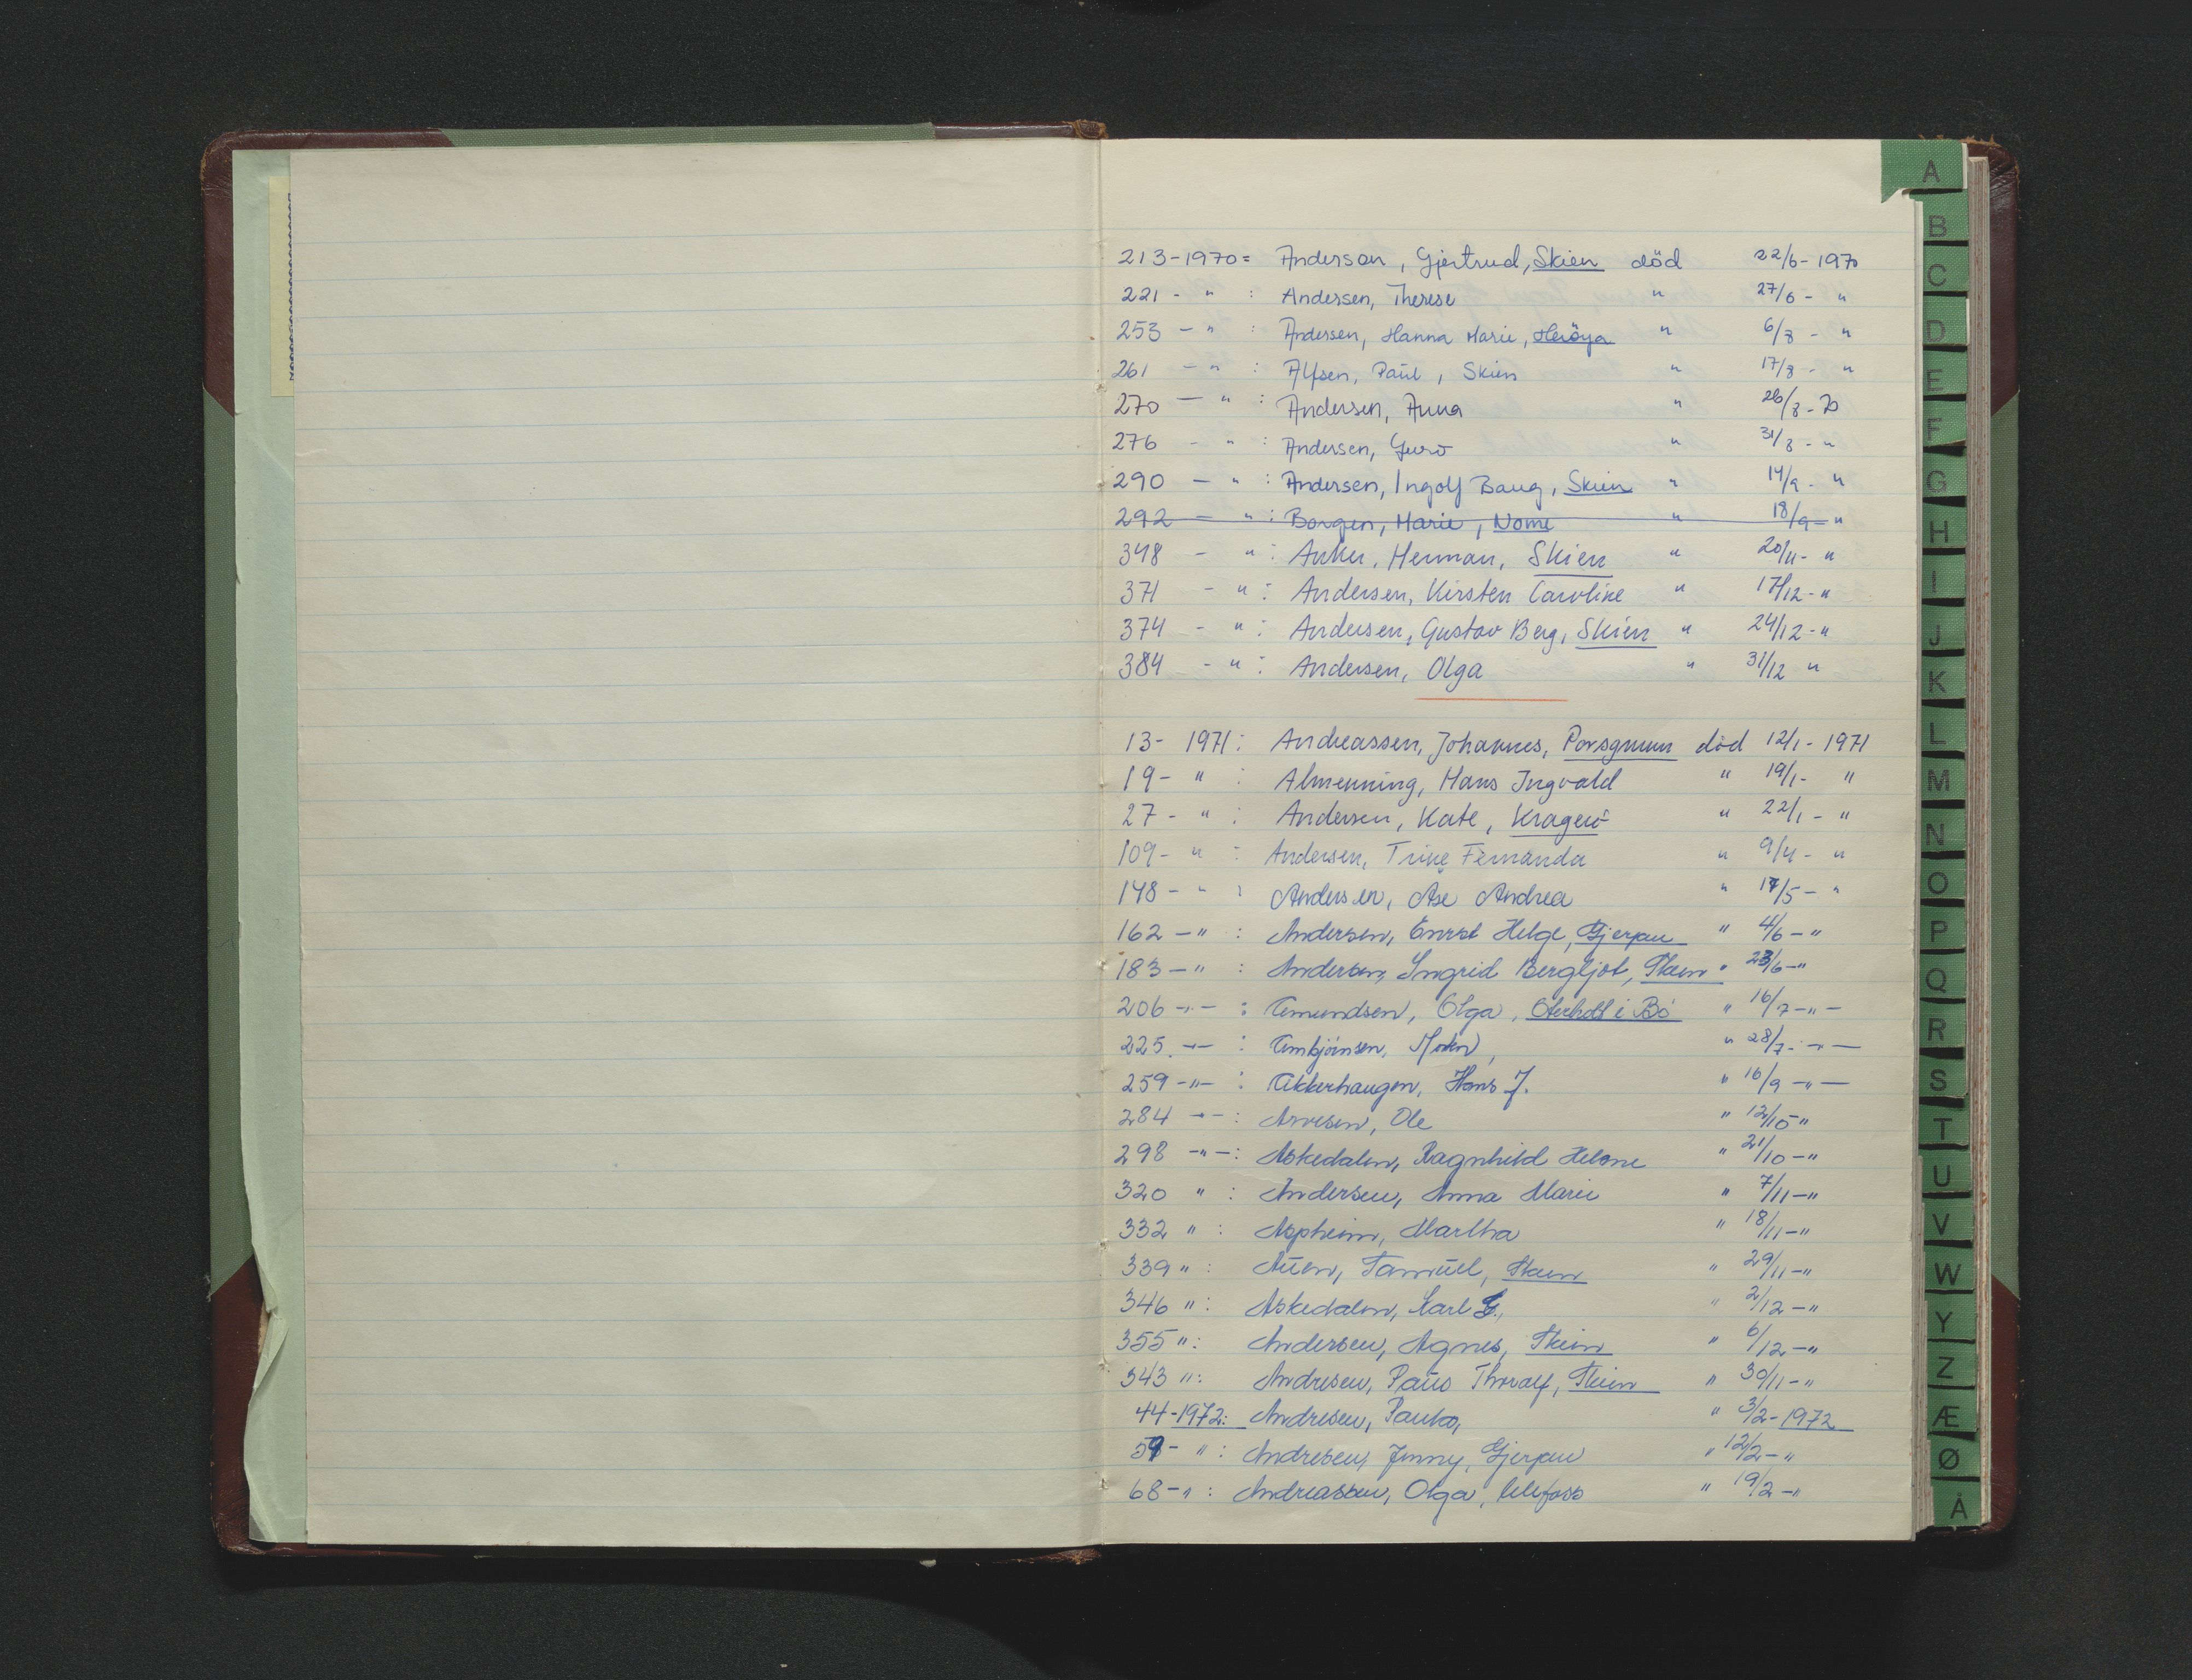 213-1970= Anderson, Gjertrud, Skien död 22/6-1970
221 - " : Andersen, Therese " 27/6 - "
253 - " : Andersen, Hanna Marie, Heröya " 6/8 - "
261 - " : Alfsen, Paul, Skien " 17/8 - "
270 - " : Andersen, Anna " 26/8 - 70
276 - " : Andersen, Guro " 31/8 - "
290 - " : Andersen, Ingolf Baug, Skien " 14/9 - "
292 - " : Borgen, Marie, Nome " 18/9 - "
348 - " : Anker, Herman, Skien " 20/11 - "
371 - " : Andersen, Kirsten Caroline " 17/12 - "
374 - " : Andersen, Gustav Berg, Skien " 24/12 - "
384 - " : Andersen, Olga " 31/12 "
13- 1971: Andreassen, Johannes, Porsgrunn död 12/1- 1971
19- " : Almenning, Hans Ingvald " 19/1- "
27- " : Andersen, Kate, Kragerö " 22/1 - "
109- " : Andersen, Trine Fernanda " 9/4 - "
148- " : Andersen, Åse Andrea " 17/5 - "
162 - " : Andersen, Ernst Helge, Gjerpen " 4/6 - "
183 - " : Andersen, Ingrid Bergljot, Skien " 23/6 - "
206 - " - : Amundsen, Olga, i Bö " 16/7 - " -
225. - " - : " 28/7 - " -
259 - " - : Akkerhaugen, Hans J. " 16/9 - " -
284 - " - : Arvesen, Ole " 12/10 "
298 - " - : Askedalen, Ragnhild Helene " 21/10 - "
320 " : Andersen, Anna Marie " 7/11 - "
332 " : Aspheim, Martha " 18/11 - "
339 " : Auen, Samuel, Skien " 29/11 - "
346 " : Askedalen, Karl " 2/12 - "
355 " : Andersen, Agnes, Skien " 6/12 - "
343 " : Andresen, Paus Thoralf, Skien " 30/11 - "
44-1972: Andresen, " 3/2 - 1972
59- " : Andresen, Jenny, Gjerpen " 12/2 - "
68 - " : Andreassen, Olga, Ulefoss " 19/2 - "
A
B
C
D
E
F
G
H
I
J
K
L
M
N
O
P
Q
R
S
T
U
V
W
Y
Z
Æ
Ø
Å